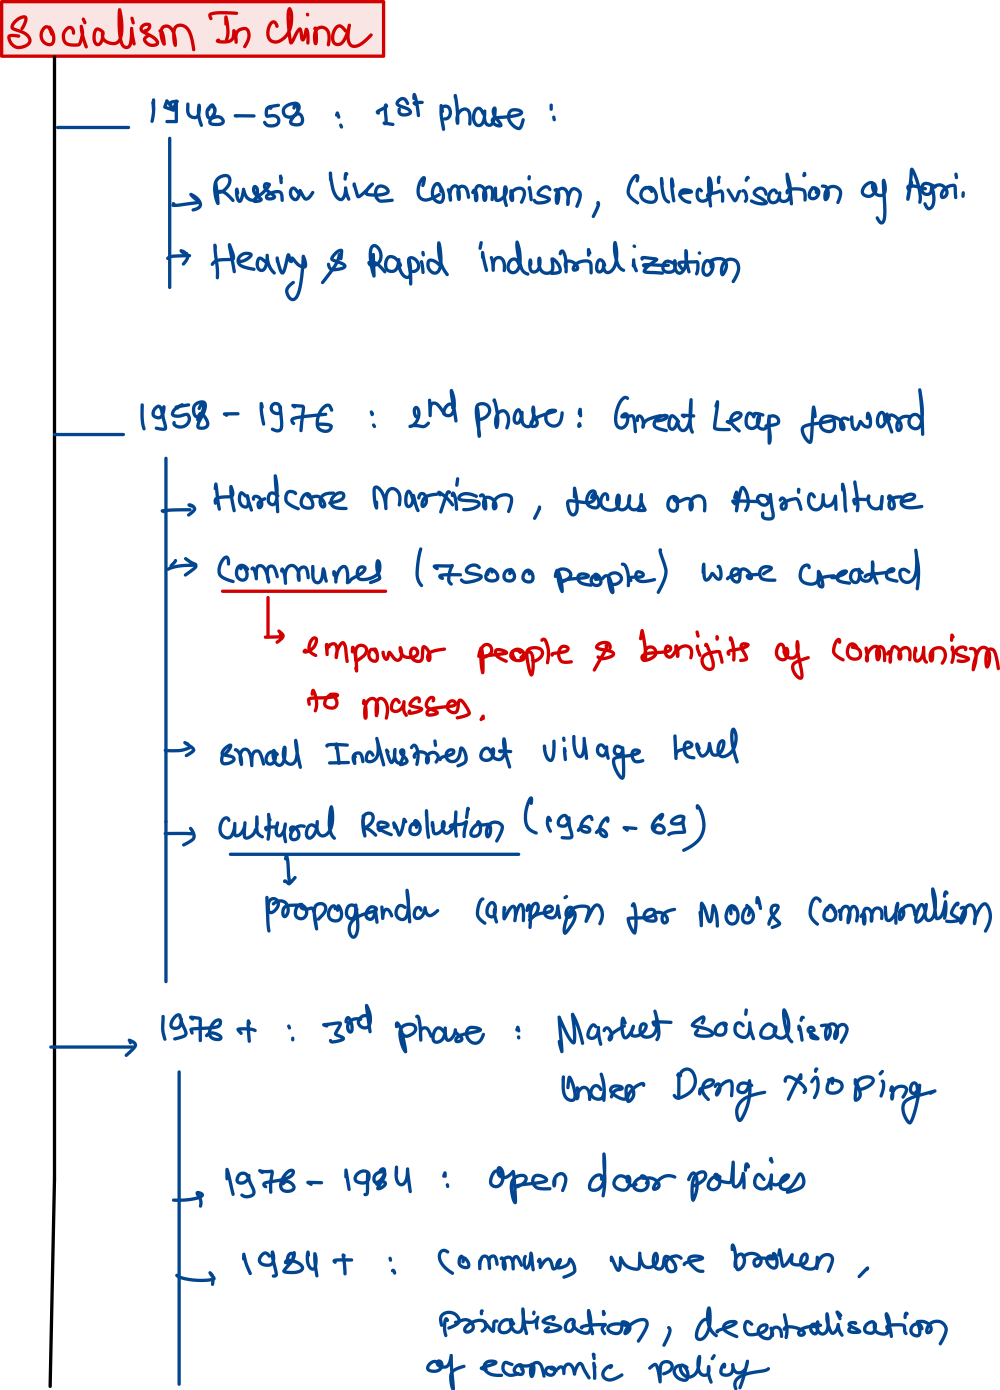 Socialism In China
1948-58 : 1st phase :
Russia like Communism, Collectivisation of Agri.
Heavy & Rapid industrialization
1958 - 1976 : 2nd Phase : Great Leap forward
Hardcore Marxism, focus on Agriculture
Communes (75000 people) were created
empower people & benifits of communism
to masses.
small Industries at village level
Cultural Revolution (1966 - 69)
propoganda campeign for Moo's Communalism
1976 + : 3rd phase : Market Socialism
Under Deng Xioping
1978 - 1984 : open door policies
1984 + : Communes were broken,
privatisation, decentralisation
of economic policy